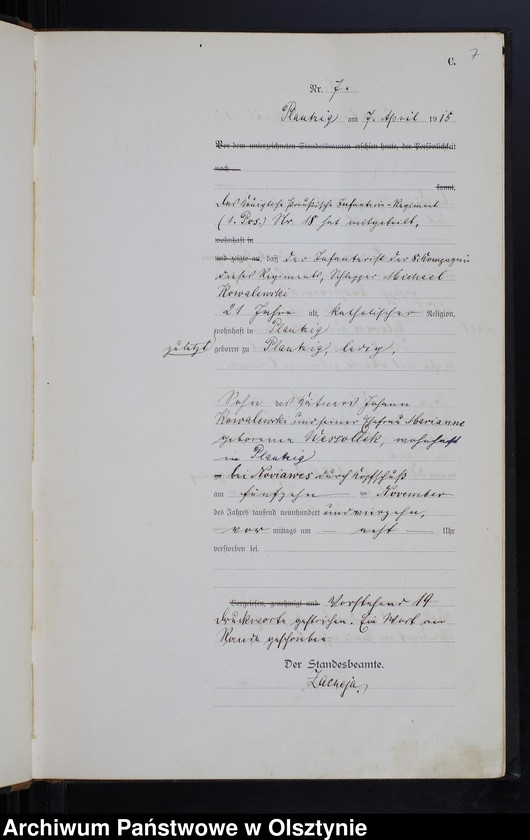 7
C.
Nr. 7.
Plautzig am 7. April 1915.
Vor dem unterzeichneten Standesbeamten erschien heute, der Persönlichkeit
nach
kannt,
Das Königliche Preußische Infanterie-Regiment
(1. Pos.) Nr. 18 hat mitgeteilt,
wohnhaft in
und zeigte an, daß der Infanterist der 8. Kompagnie
dieses Regiments, Michael
Kowalewski
21 Jahre alt, katholischer Religion,
wohnhaft in Plautzig
zuletzt
geboren zu Plautzig, ledig,
Sohn des Kätners Johann
Kowalewski und seiner Ehefrau Marianne
geborenen Wescollek, wohnhaft
in Plautzig
bei durch Kopfschuß
am fünfzehn ten November
des Jahres tausend neunhundert und vierzehn,
vor mittags um acht Uhr
verstorben sei.
Vorgelesen, genehmigt und Vorstehend 19
Druckworte gestrichen. Ein Wort am
Rande geschrieben
Der Standesbeamte.
Zacheja.
Archiwum Państwowe w Olsztynie